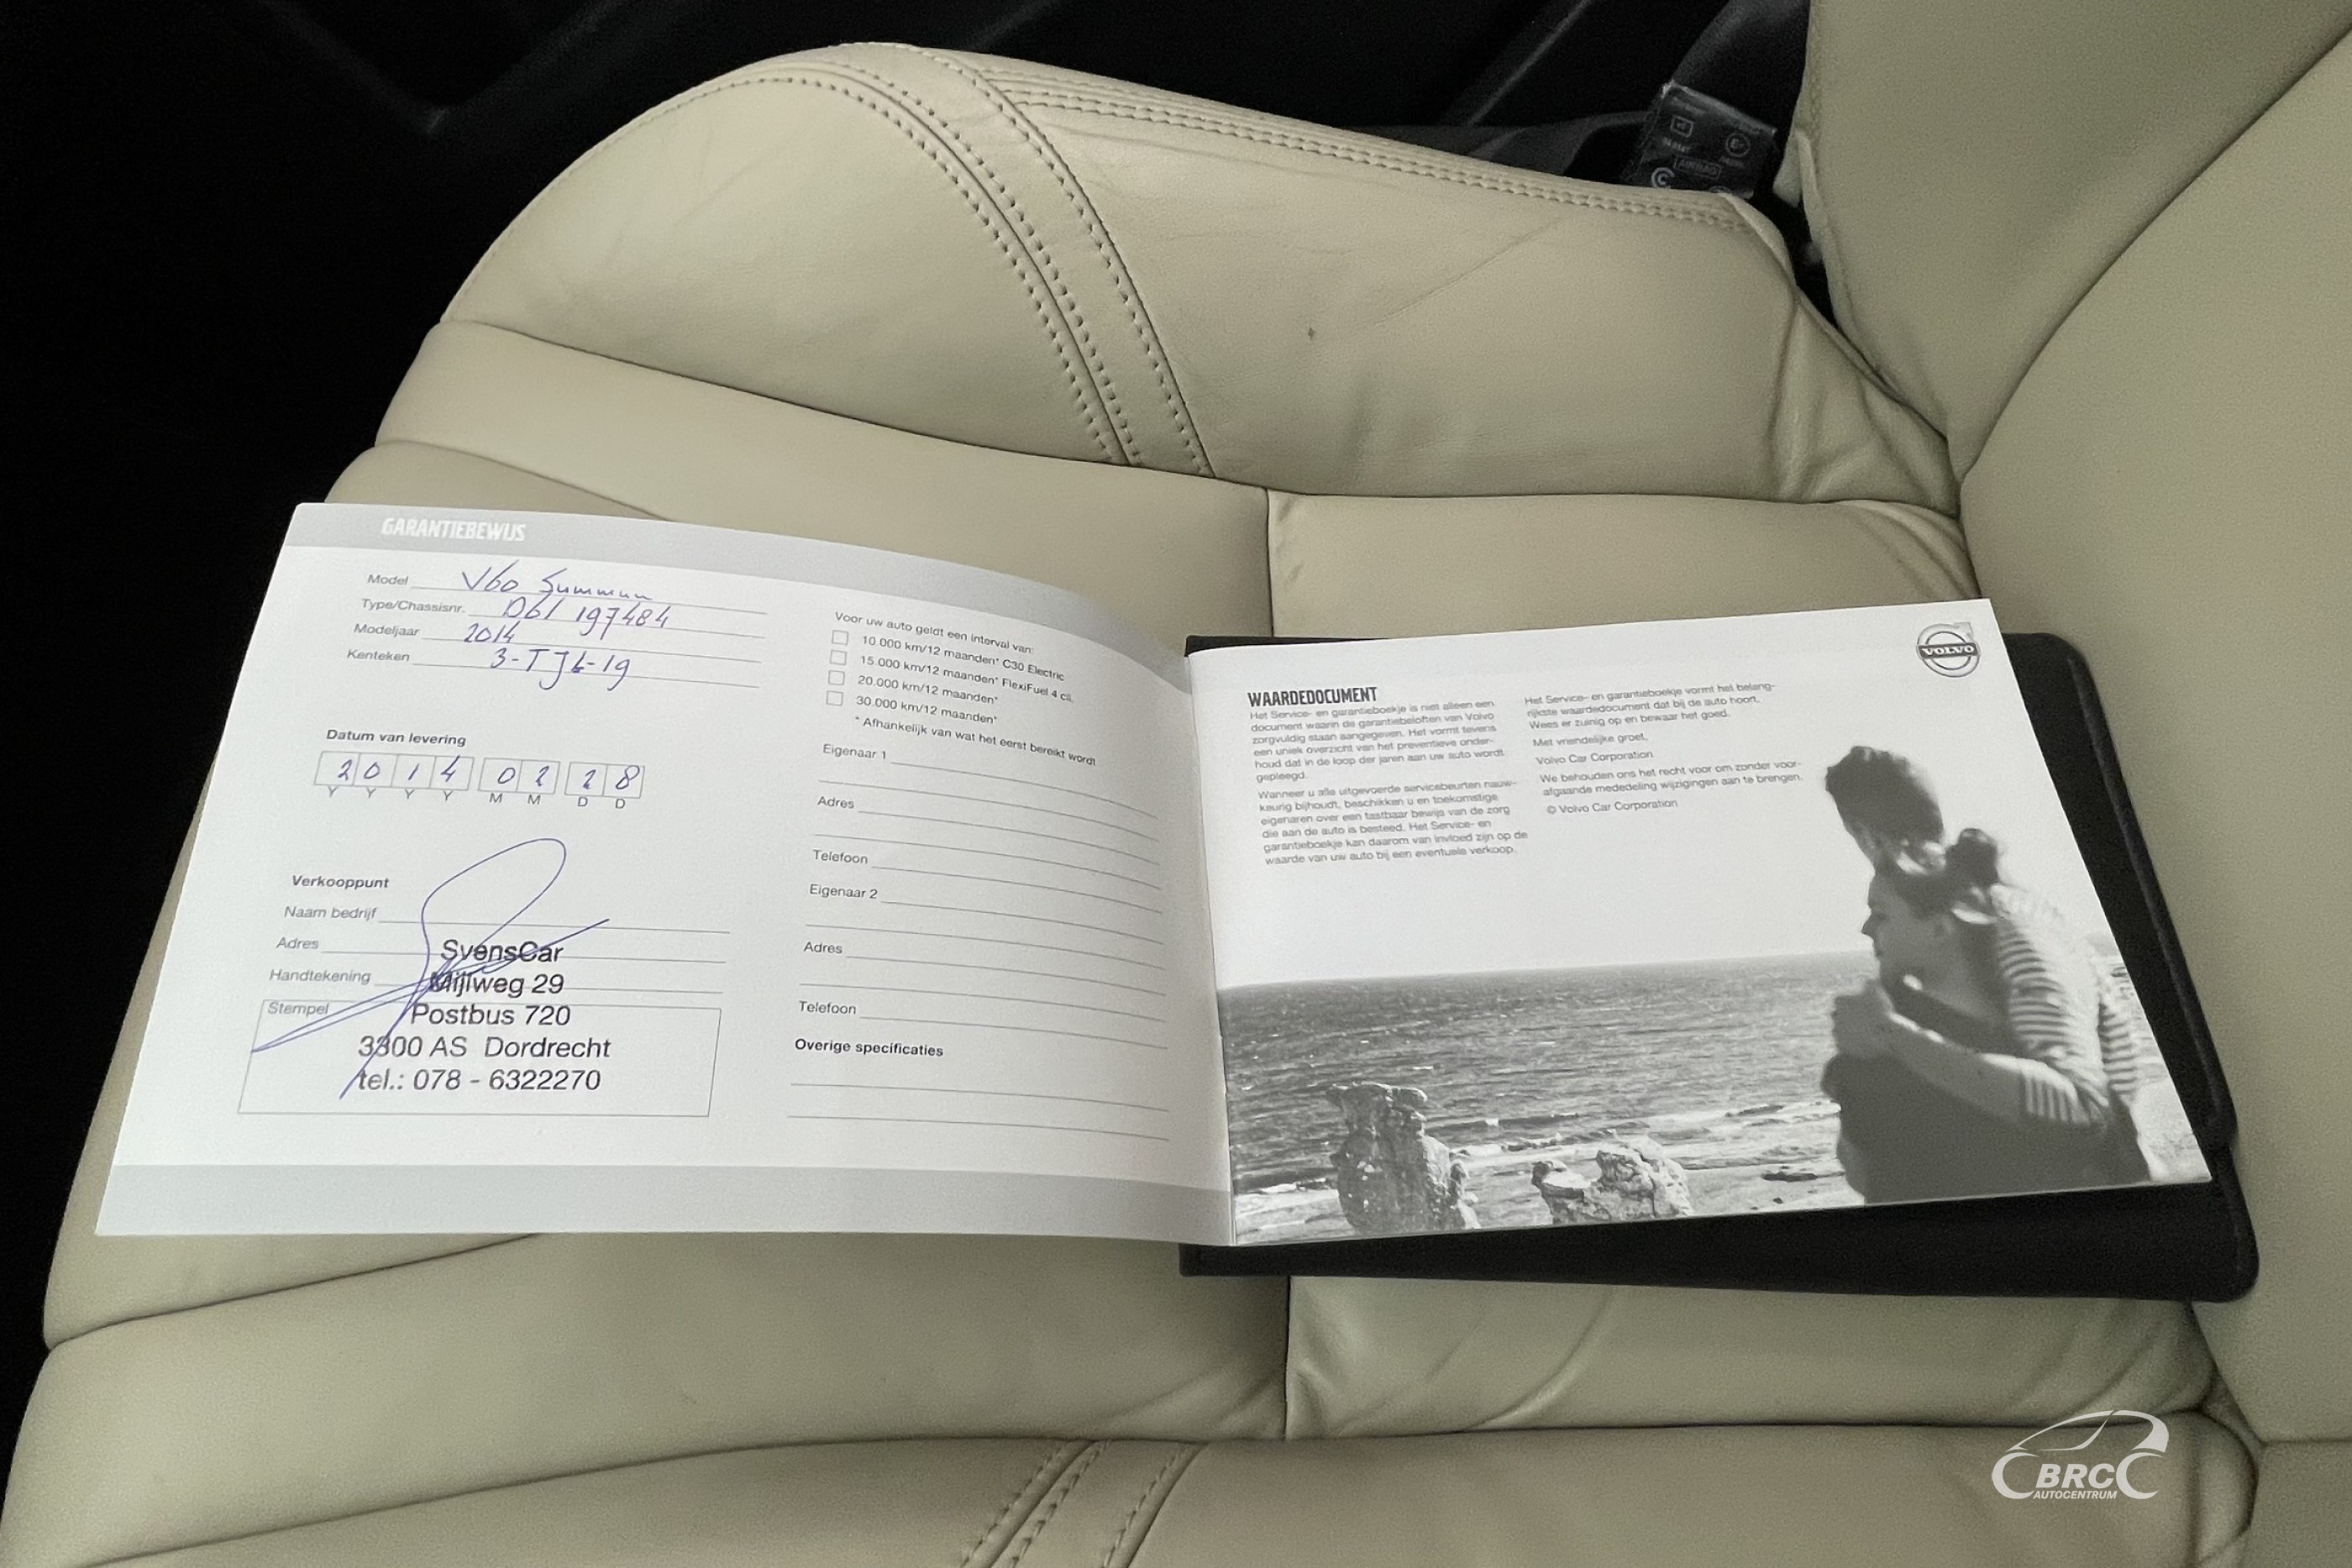 GARANTIEBEWIJS
Model V60 Summum
Type/Chassisnr. D61 197484
Modeljaar 2014
Kenteken 3-TJL-19
Datum van levering
2 0 1 4 0 2 2 8
Y Y Y Y M M D D
Verkooppunt
Naam bedrijf
Adres
Handtekening
Stempel
SvensCar
Mijlweg 29
Postbus 720
3300 AS Dordrecht
tel.: 078 - 6322270
Voor uw auto geldt een interval van:
10.000 km/12 maanden* C30 Electric
15.000 km/12 maanden* FlexiFuel 4 cil.
20.000 km/12 maanden*
30.000 km/12 maanden*
* Afhankelijk van wat het eerst bereikt wordt
Eigenaar 1
Adres
Telefoon
Eigenaar 2
Adres
Telefoon
Overige specificaties
VOLVO
WAARDEDOCUMENT
Het Service- en garantieboekje is niet alleen een
document waarin de garantiebeloften van Volvo
zorgvuldig staan aangegeven. Het vormt tevens
een uniek overzicht van het preventieve onder-
houd dat in de loop der jaren aan uw auto wordt
gepleegd.
Wanneer u alle uitgevoerde servicebeurten nauw-
keurig bijhoudt, beschikken u en toekomstige
eigenaren over een tastbaar bewijs van de zorg
die aan de auto is besteed. Het Service- en
garantieboekje kan daarom van invloed zijn op de
waarde van uw auto bij een eventuele verkoop.
Het Service- en garantieboekje vormt het belang-
rijkste waardedocument dat bij de auto hoort.
Wees er zuinig op en bewaar het goed.
Met vriendelijke groet,
Volvo Car Corporation
We behouden ons het recht voor om zonder voor-
afgaande mededeling wijzigingen aan te brengen.
© Volvo Car Corporation
AIRBAG
BRC
AUTOCENTRUM